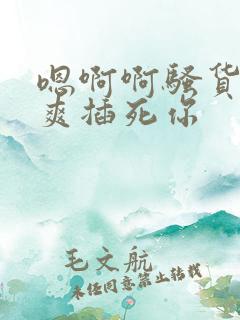 嗯啊啊骚货
爽插死你
毛文航
未经同意禁止转载